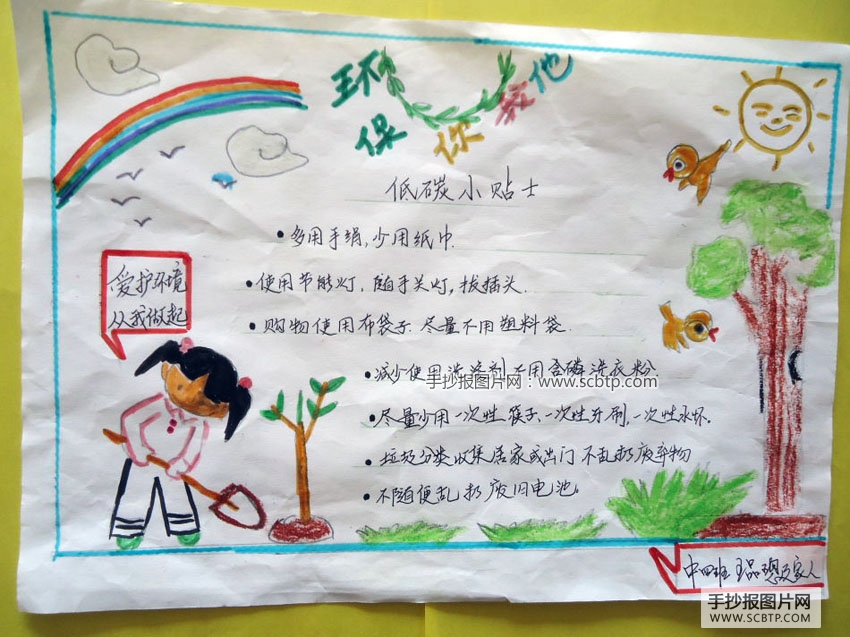 环保 你我他
低碳小贴士
•多用手绢,少用纸巾.
•使用节能灯,随手关灯,拔插头.
•购物使用布袋子.尽量不用塑料袋.
•减少使用洗涤剂不用含磷洗衣粉.
手抄报图片网:www.scbtp.com
•尽量少用一次性筷子、一次性牙刷,一次性水怀。
•垃圾分类收集居家或出门不乱扔废弃物
•不随便乱扔废旧电池。
爱护环境
从我做起
中四班 及家人
手抄报图片网
WWW.SCBTP.COM